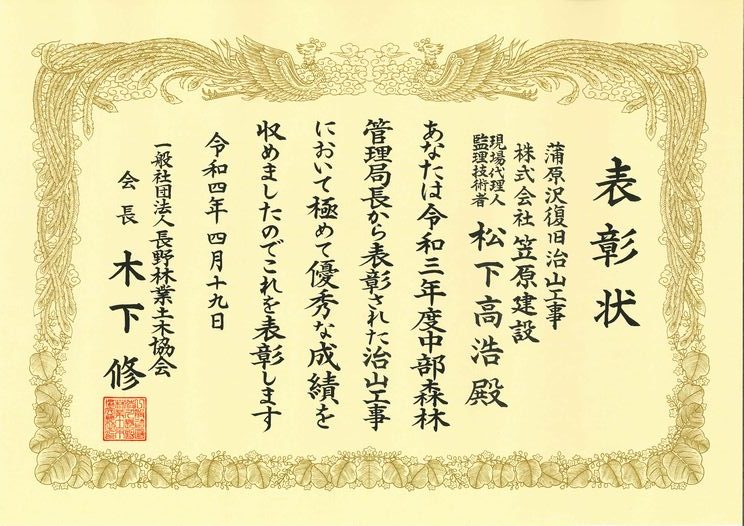 表彰状
蒲原沢復旧治山工事
株式会社 笠原建設
現場代理人
監理技術者
松下高浩 殿
あなたは令和三年度中部森林
管理局長から表彰された治山工事
において極めて優秀な成績を
収めましたのでこれを表彰します
令和四年四月十九日
一般社団法人長野林業土木協会
会長 木下 修